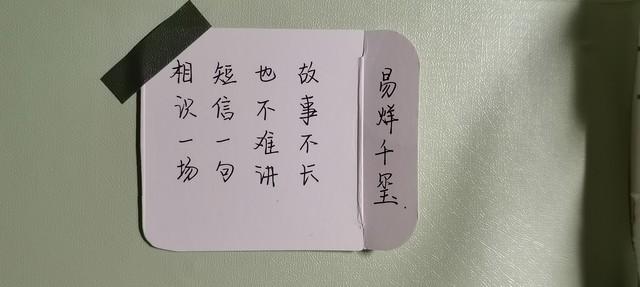 易烊千玺
故事不长
也不难讲
短信一句
相识一场